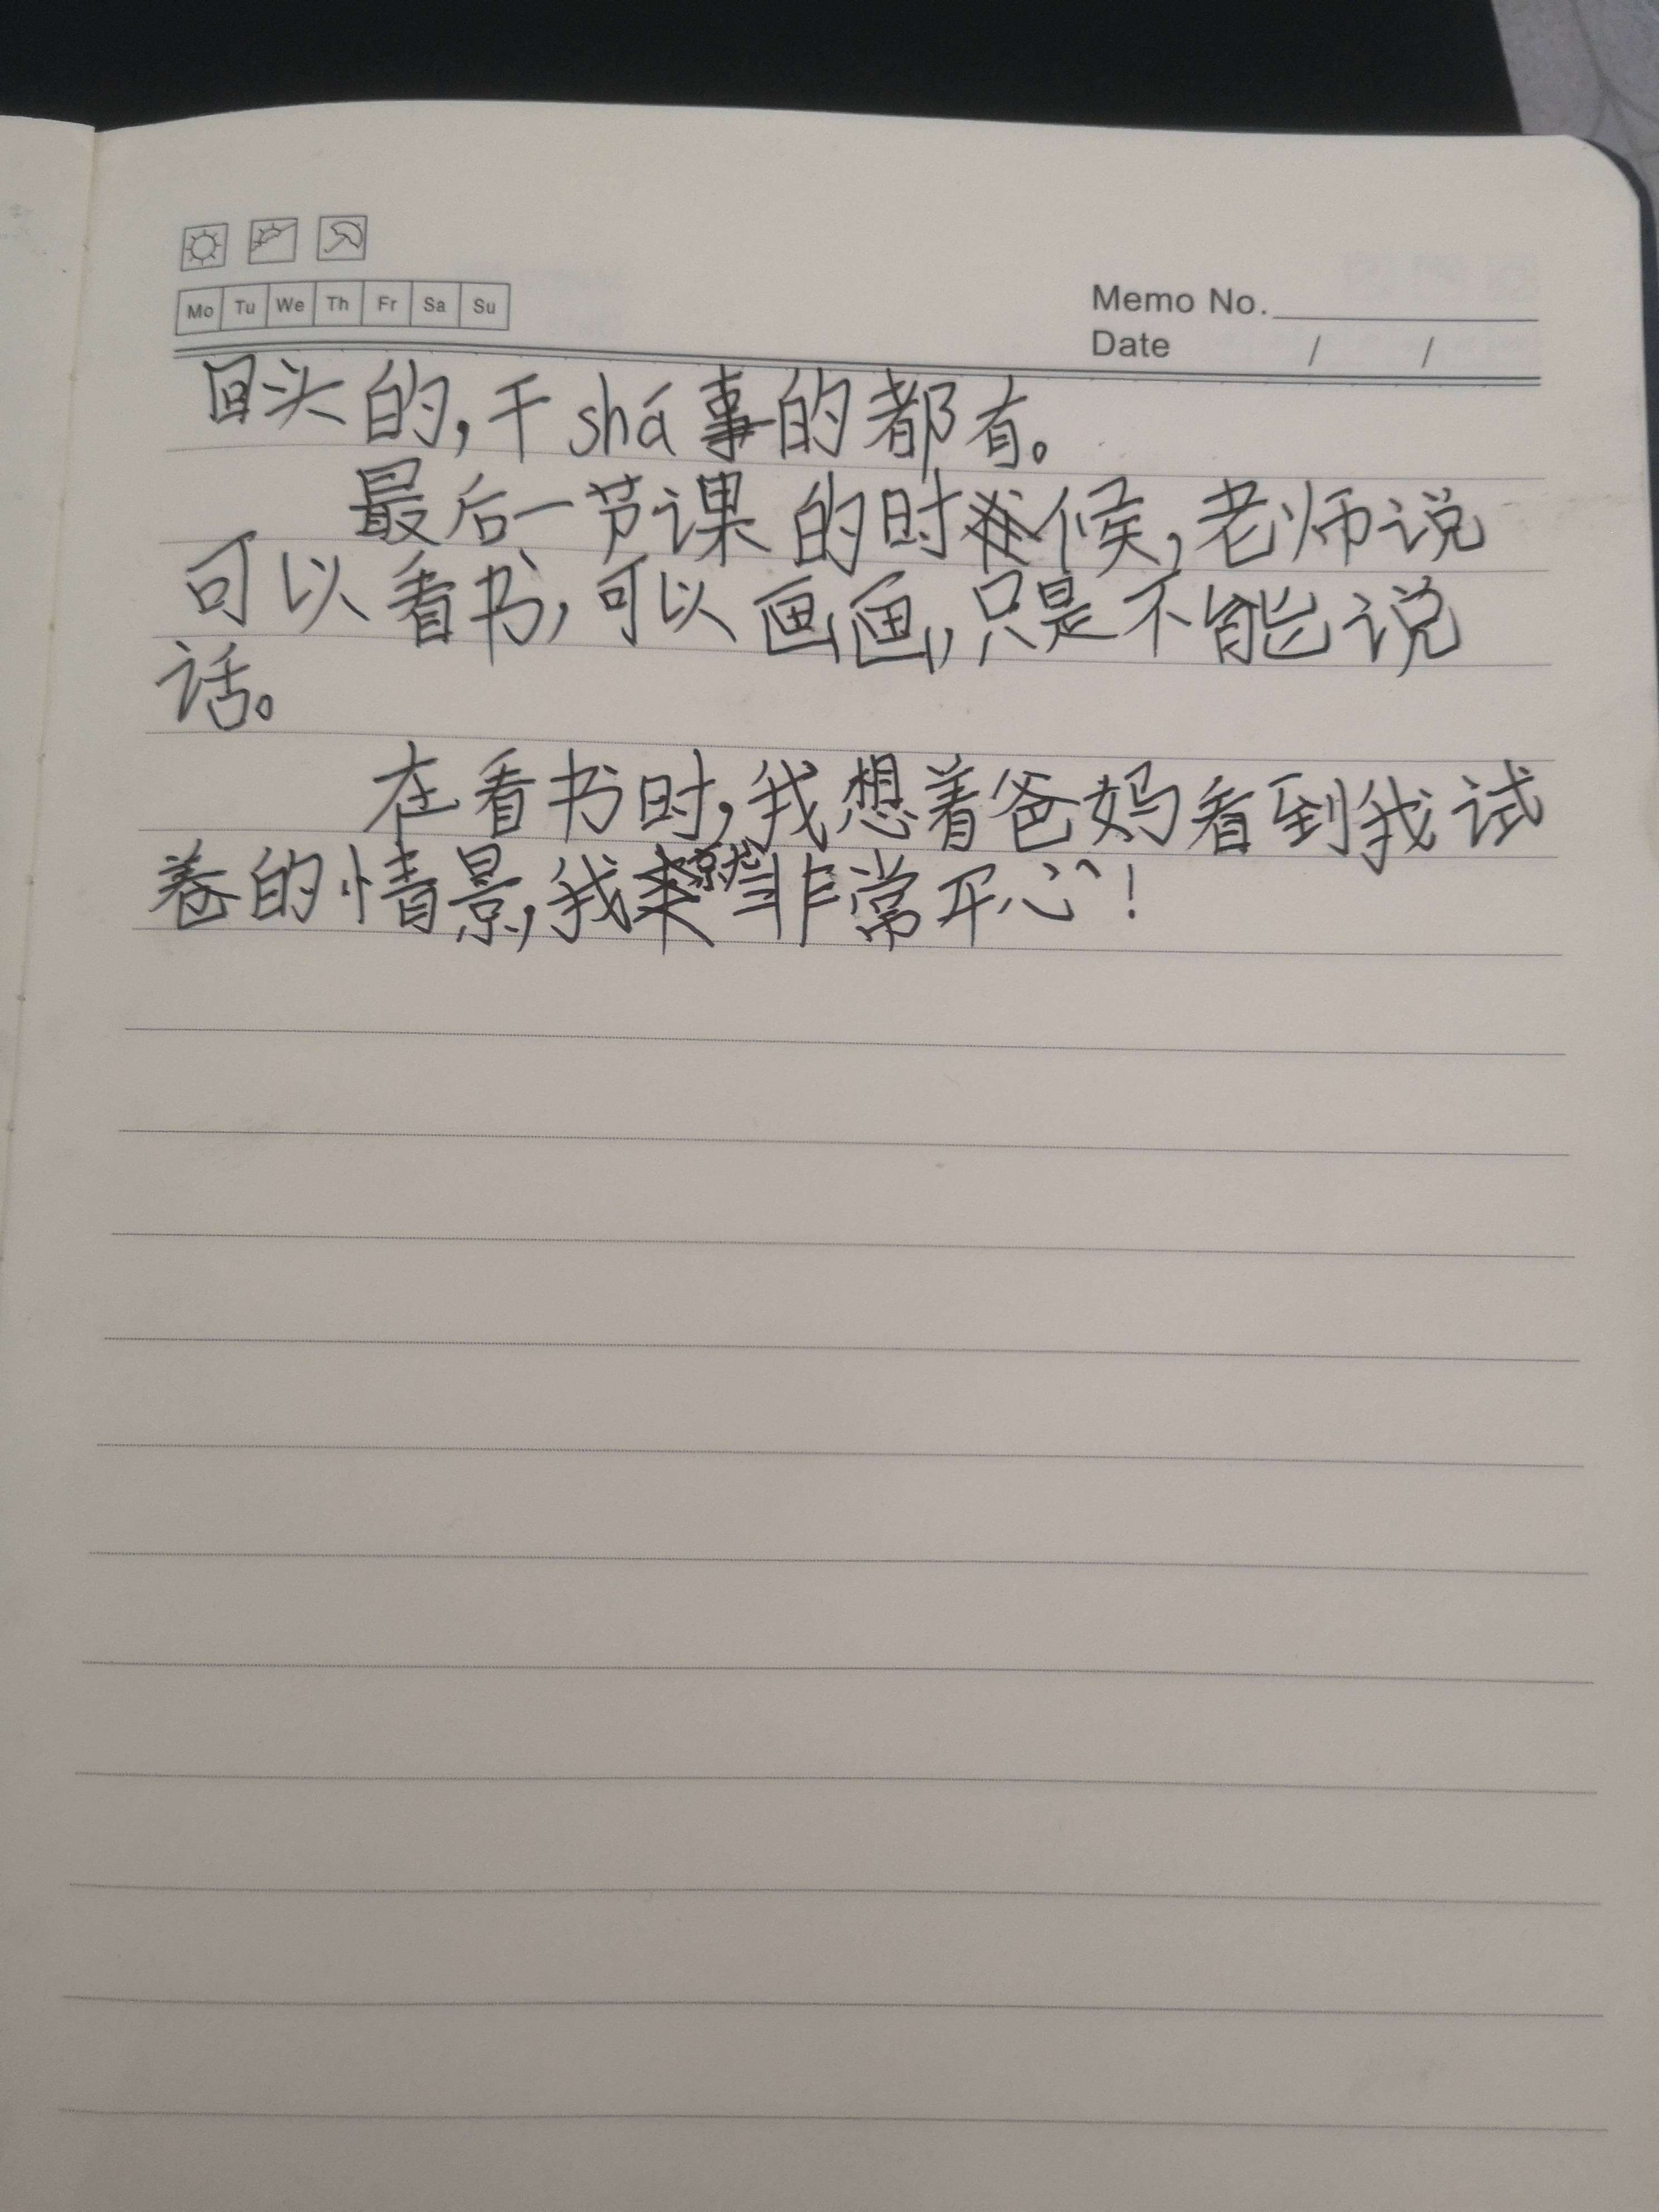 Mo Tu We Th Fr Sa Su
Memo No.
Date / /
回头的,干shá事的都有。
最后一节课的时候,老师说
可以看书,可以画画,只是不能说
话。
在看书时,我想着爸妈看到我试
卷的情景,我就非常开心!